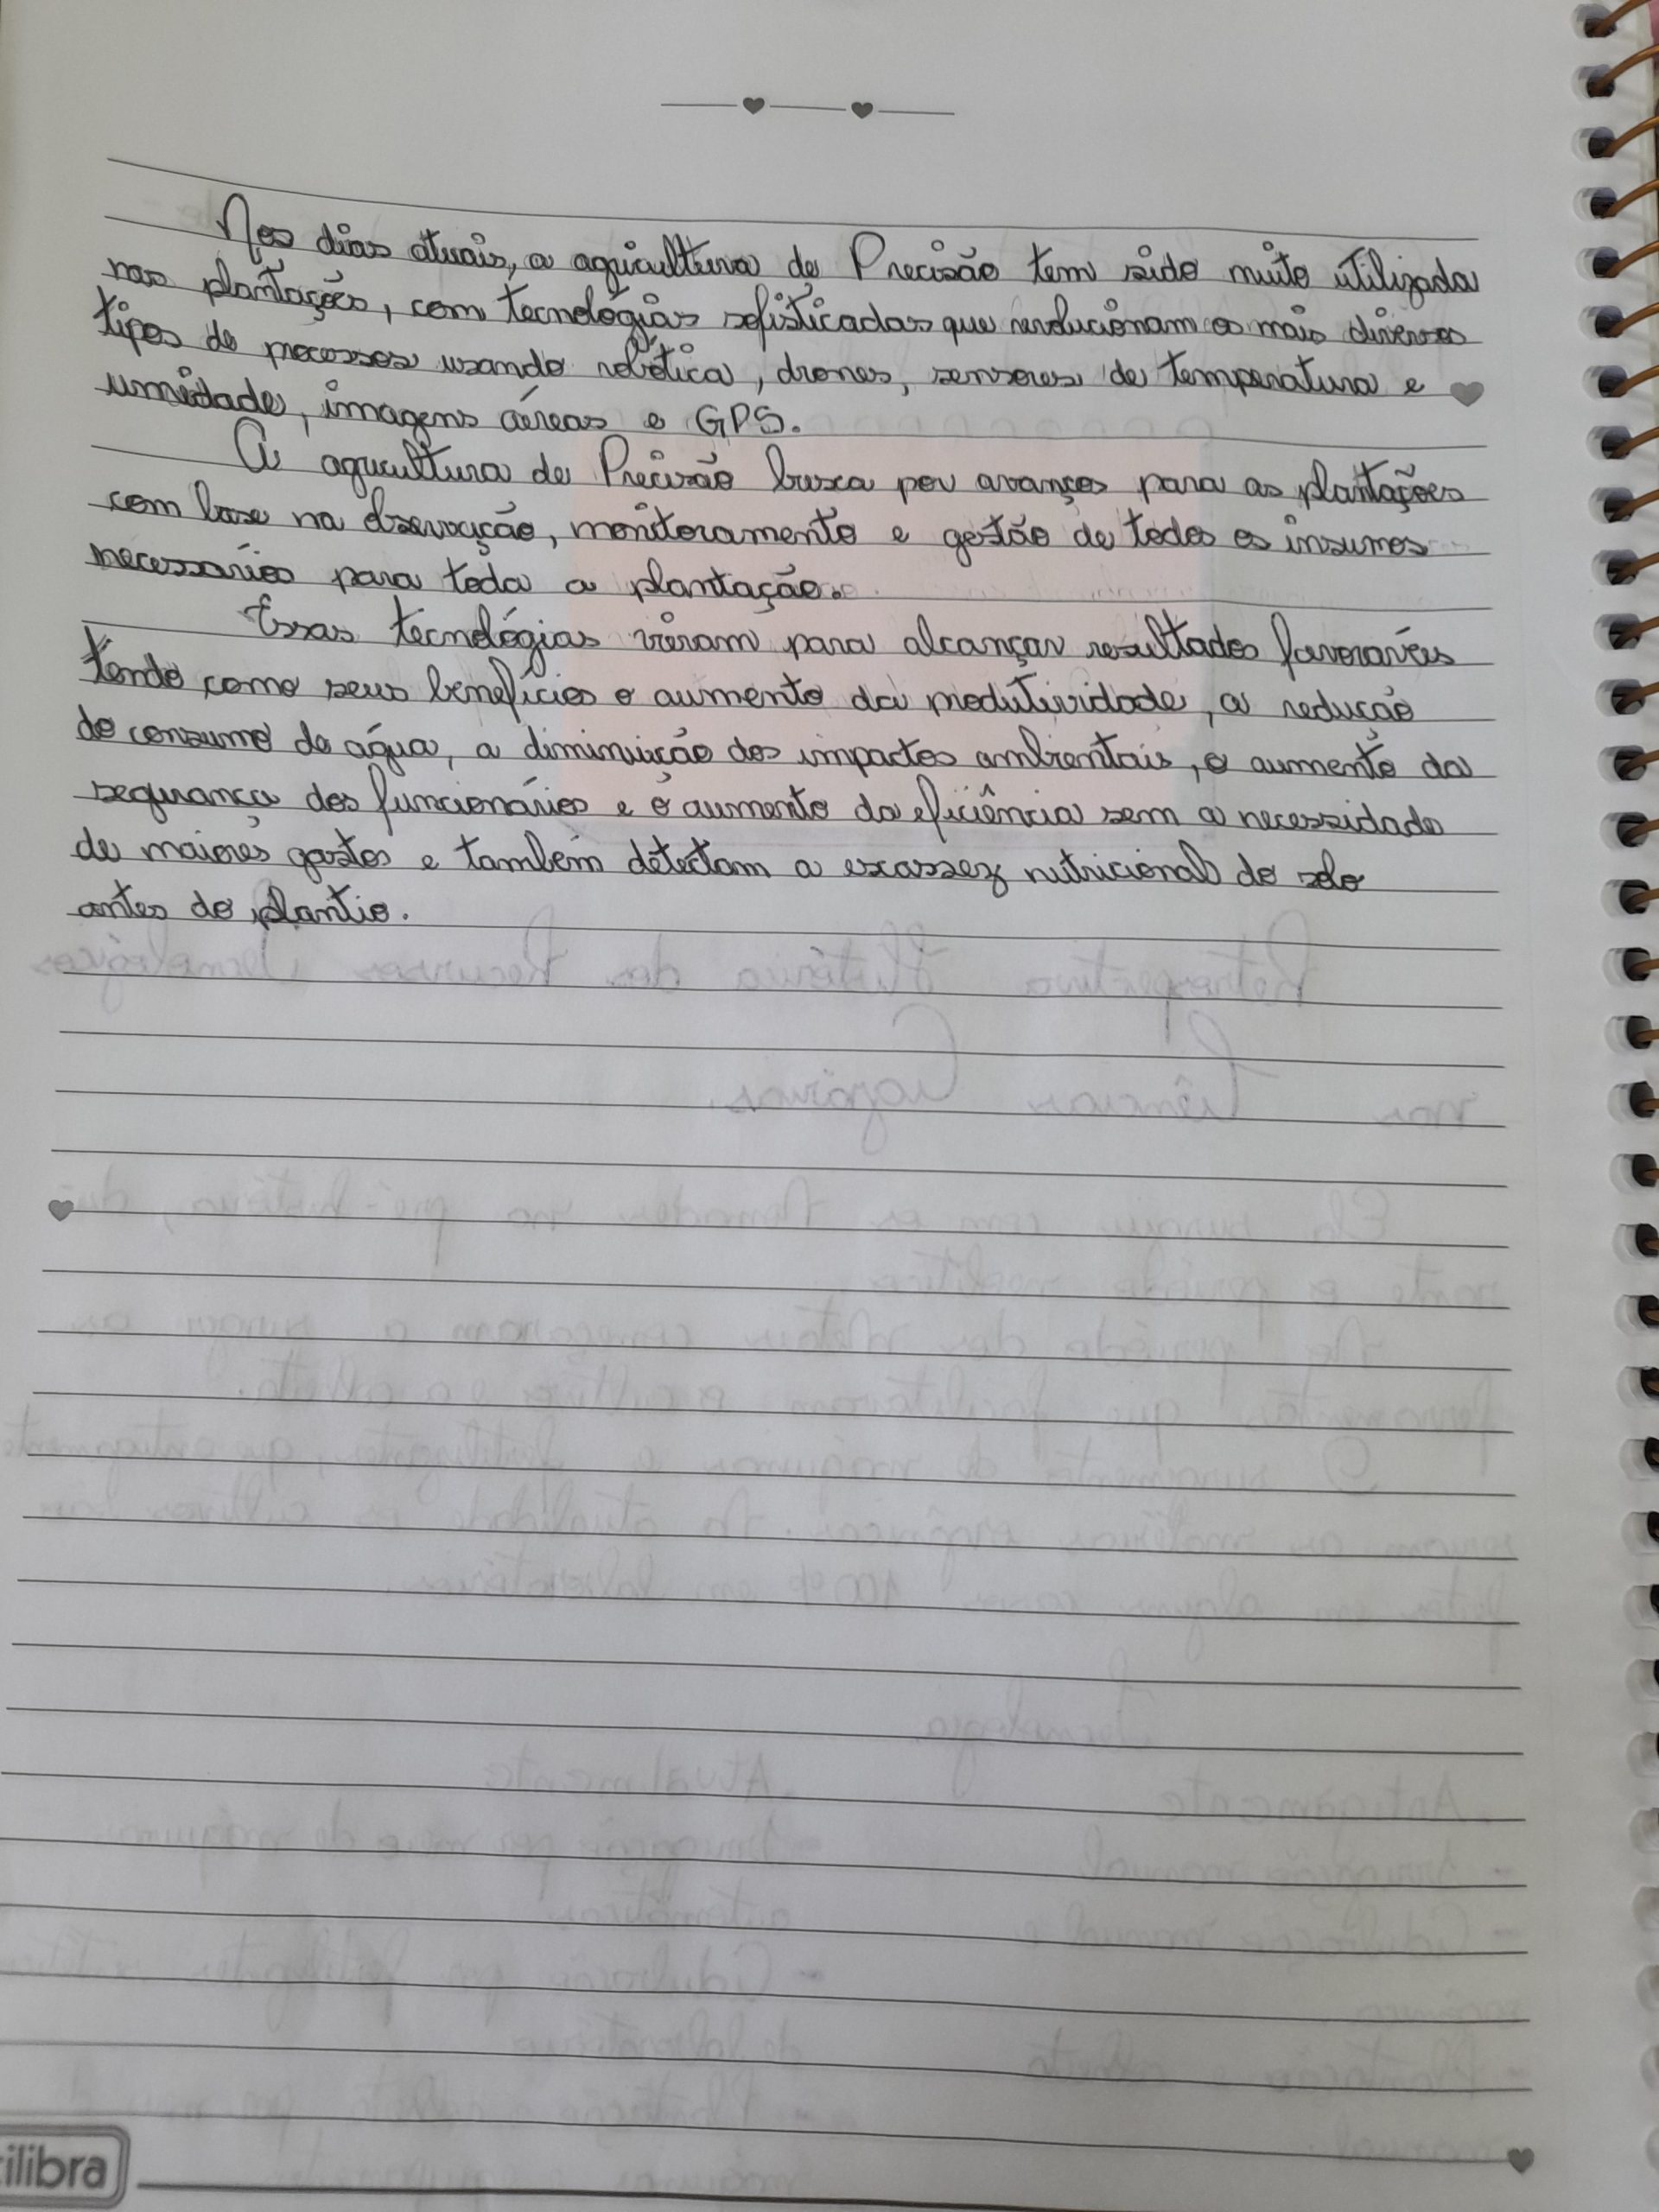 Nos dias atuais, a agricultura de Precisão tem sido muito utilizada
nas plantações, com tecnológias sofisticadas que revolucionam os mais diversos
tipos de processos usando robótica, drones, sensores de temperatura e
umidade, imagens áereas e GPS.
A agricultura de Precisão busca por avanços para as plantações
com base na observação, monitoramento e gestão de todos os insumos
necessários para toda a plantação.
Essas tecnológias vieram para alcançar resultados favoravéis
tendo como seus benefícios o aumento da produtividade, a redução
do consumo de água, a diminuição dos impactos ambientais, o aumento da
segurança dos funcionários e o aumento da eficiência sem a necessidade
de maiores gastos e também détectam a escassez nutricional do solo
antes do plantio.
tilibra